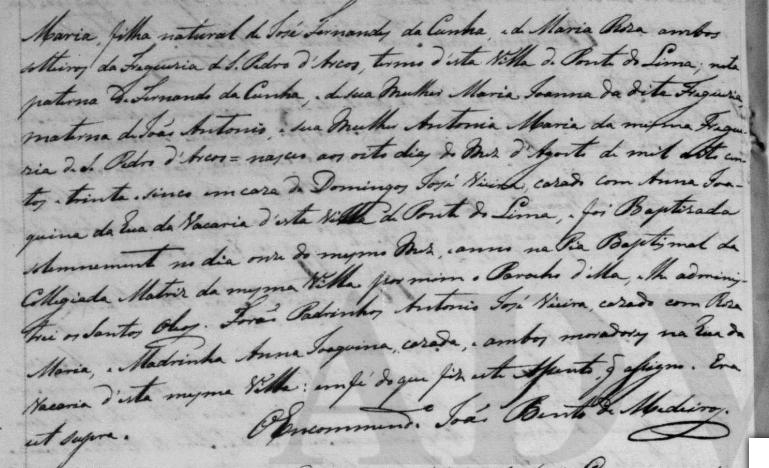 Maria filha natural de José Fernandes da Cunha, e de Maria Roza ambos
solteiros da Freguezia de S. Pedro d'Arcos, termo d'esta Villa de Ponte do Lima; neta
paterna de Fernando da Cunha, e de sua Mulher Maria Joanna da dita Freguezia,
materna de João Antonio, e sua Mulher Antonia Maria da mesma Fregue-
zia de S. Pedro d'Arcos = nasceo aos oito dias do Mez d'Agosto de mil oito cen-
tos e trinta e sinco em caza de Domingos José Vieira, cazado com Anna Joa-
quina da Rua da Vacaria d'esta Villa de Ponte do Lima, e foi Baptizada
solemnemente no dia onze do mesmo Mez, e anno na Pia Baptismal da
Collegiada Matriz da mesma Villa por mim o Parocho d'ella, e lh adminis-
trei os Santos Oleos. Forão Padrinhos Antonio José Vieira, cazado com Roza
Maria, e Madrinha Anna Joaquina, cazada, e ambos moradores na Rua da
Vacaria d'esta mesma Villa: em fé do que fiz este Assento, q assigno. Era
ut supra.
O Encommend.o João Bento de Medeiros.
ADV